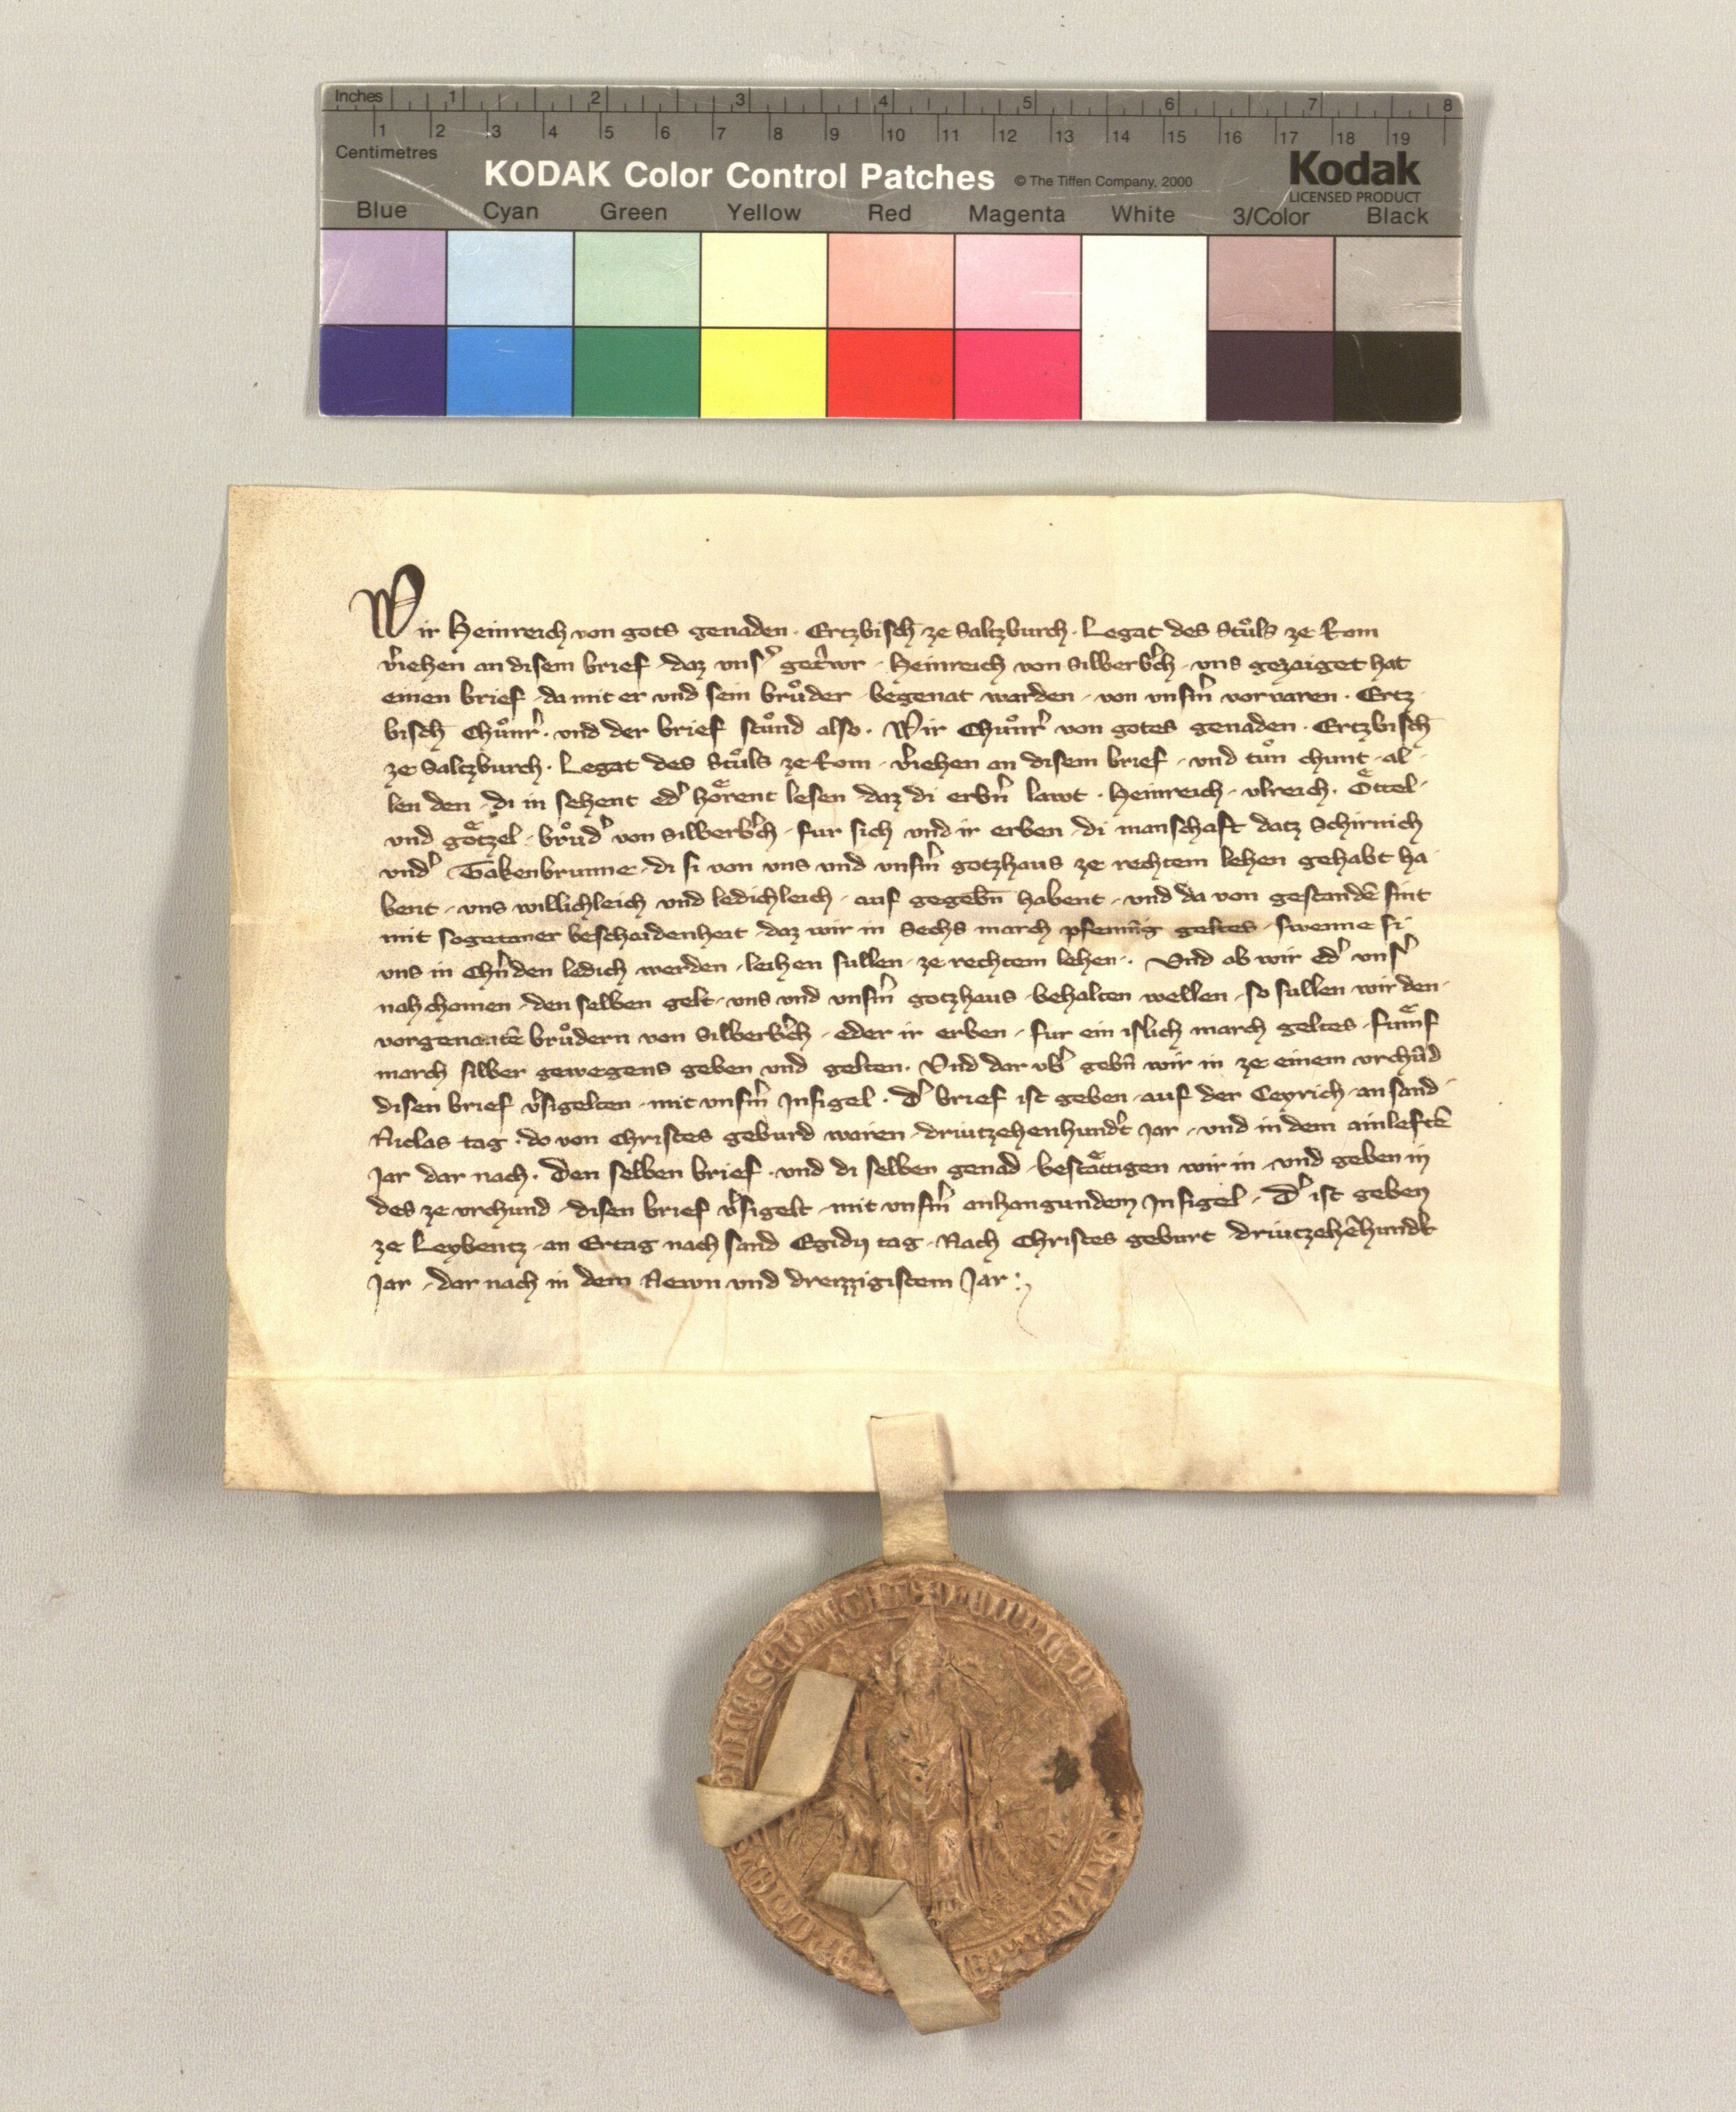 Inches 1 2 3 4 5 6 7 8
1 2 3 4 5 6 7 8 9 10 11 12 13 14 15 16 17 18 19
Centimetres
KODAK Color Control Patches © The Tiffen Company, 2000 Kodak
LICENSED PRODUCT
Blue Cyan Green Yellow Red Magenta White 3/Color Black
Wir Heinreich von gots genaden · Ertzbisch̄ ze Saltzburch · Legat des Stůls ze Rom
v̓iehen an disem brief · daz vnsˀ getr̓wr · Heinreich von Silberb̓ch · vns gezaiget hat
einen brief · da mit er vnd sein brůder · begenat warden · von vnsm̓ vorvaren · Ertz
bisch̄ Chůnr̓ · vnd der brief stůnd also · Wir Chůnr̓ von gotes genaden · Ertzbisch̄
ze Saltzburch · Legat des Stůls ze Rom · v̓iehen an disem brief · vnd tůn chunt · al
len den · di in sehent edˀ hoͤrent lesen · daz di erbn̓ lawt · Heinreich · vlreich · Oͤttel ·
vnd goͤtzel · brůdˀ von Silberb̓ch · fur sich vnd ir erben · di manschaft datz Schirnich
vndˀ Takenbrunne · di si von vns vnd vnsm̓ gotzhaus ze rechtem lehen gehabt ha
bent · vns willichleich vnd ledichleich · auf gegebn̄ habent · vnd da von gestandē sint
mit sogetaner beschaidenheit · daz wir in Sechs march pfennīg geltes · swenne si
vns in Ch̓nden ledich werden · leihen sullen · ze rechtem lehen · Vnd ob wir edˀ vnsˀ
nahchomen · den selben gelt · vns vnd vnsm̓ gotzhaus · behalten wellen · so sullen wir den ·
vorgenantē brůdern von Silberb̓ch · eder ir erben · fur ein islich march geltes · fuͤmf
march silber gewegens geben vnd gelten · Vnd dar vbˀ gebn̄ wir in ze einem vrchūd
disen brief v̓sigelten · mit vnsm̓ Insigel · Dˀ brief ist geben · auf der Ceyrich · an sand
Niclas tag · do von Christes geburd waren · driutzehenhundˀt jar · vnd in dem ainleftē
Jar dar nach · Den selben brief · vnd di selben genad · bestaͤttigen wir in · vnd geben in
des ze vrchund · disen brief v̓sigelt · mit vnsm̓ anhangundem Insigel · Dˀ ist geben
ze Leybentz · an Ertag nach sand Egidij tag · Nach Christes geburt driutzehēhundˀt
Jar · dar nach in dem Newn vnd dreizzigistem Jar :